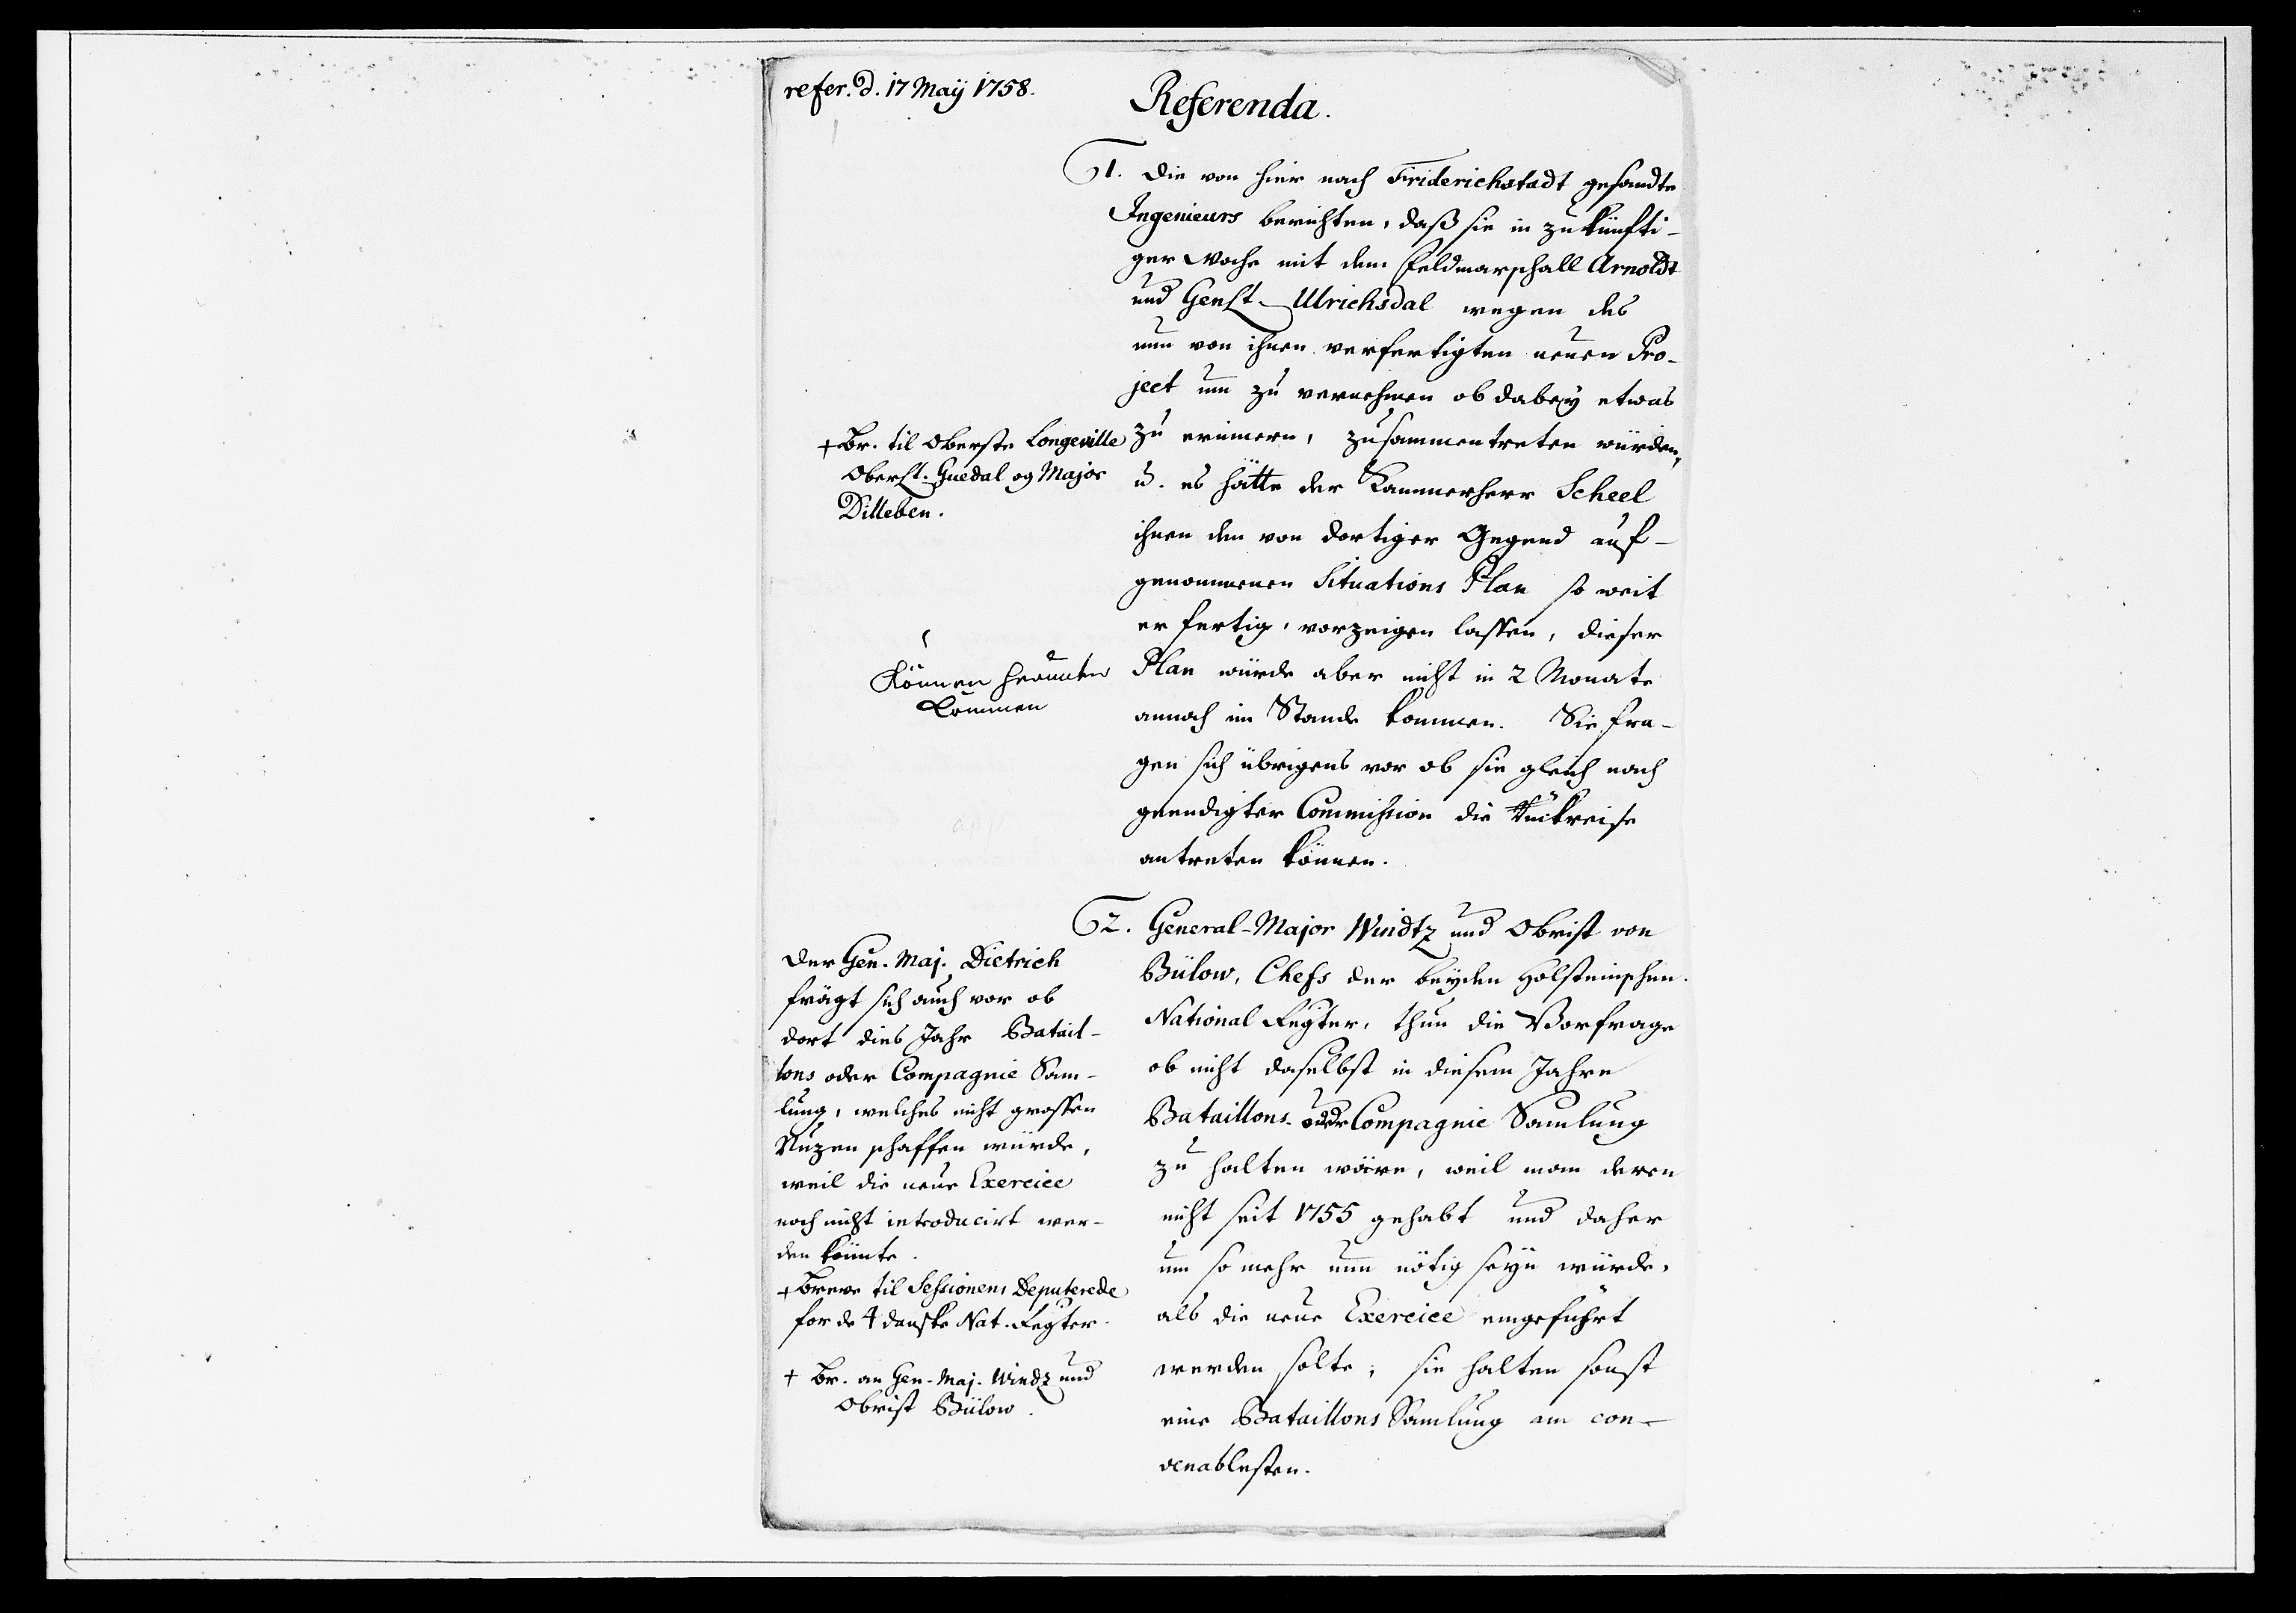 refer. d. 17 Maÿ 1758.
Referenda.
1. Die von hier nach Friderichstadt gesandte
Ingenieurs berichten, daß sie in zukünfti-
ger Woche mit dem Feldmarschall Arnoldt
und Genlt. Ulrichsdal wegen des
nun von ihnen verfertigten neuen Pro-
ject um zu vernehmen ob dabey etwas
zu erinnern, zusammentreten würden,
u. es hätte der Kammerherr Scheel
ihnen den von dortiger Gegend auf-
genommenen Situations Plan so weit
er fertig, vorzeigen lassen, dieser
Plan würde aber nicht in 2 Monate
annoch im Stande kommen. Sie fra-
gen sich übrigens vor ob sie gleich nach
geendigter Commission die Rückreise
antreten können.
+ Br. til Oberste Longeville
Oberstl. Guedal og Major
Dilleben.
Können herunter
kommen
2. General-Major Windtz und Obrist von
Bülow, Chefs der beyden Holsteinschen
National Regter, thun die Vorfrage
ob nicht daselbst in diesem Jahre
Bataillons- oder Compagnie Samlung
zu halten wäre, weil man deren
nicht seit 1755 gehabt und daher
um so mehr nun nötig seyn würde,
als die neue Exercice eingeführt
werden solte; sie halten sonst
eine Bataillons Samlung am con-
venablesten.
Der Gen. Maj. Dietrich
frägt sich auch vor ob
dort dies Jahr Batail-
lons oder Compagnie Sam-
lung, welches nicht grossen
Nuzen schaffen würde,
weil die neue Exercice
noch nicht introducirt wer-
den könnte.
+ Breve til Sessionens Deputerede
for de 4 danske Nat. Regter.
+ Br. an Gen-Maj. Windz und
Obrist Bülow.